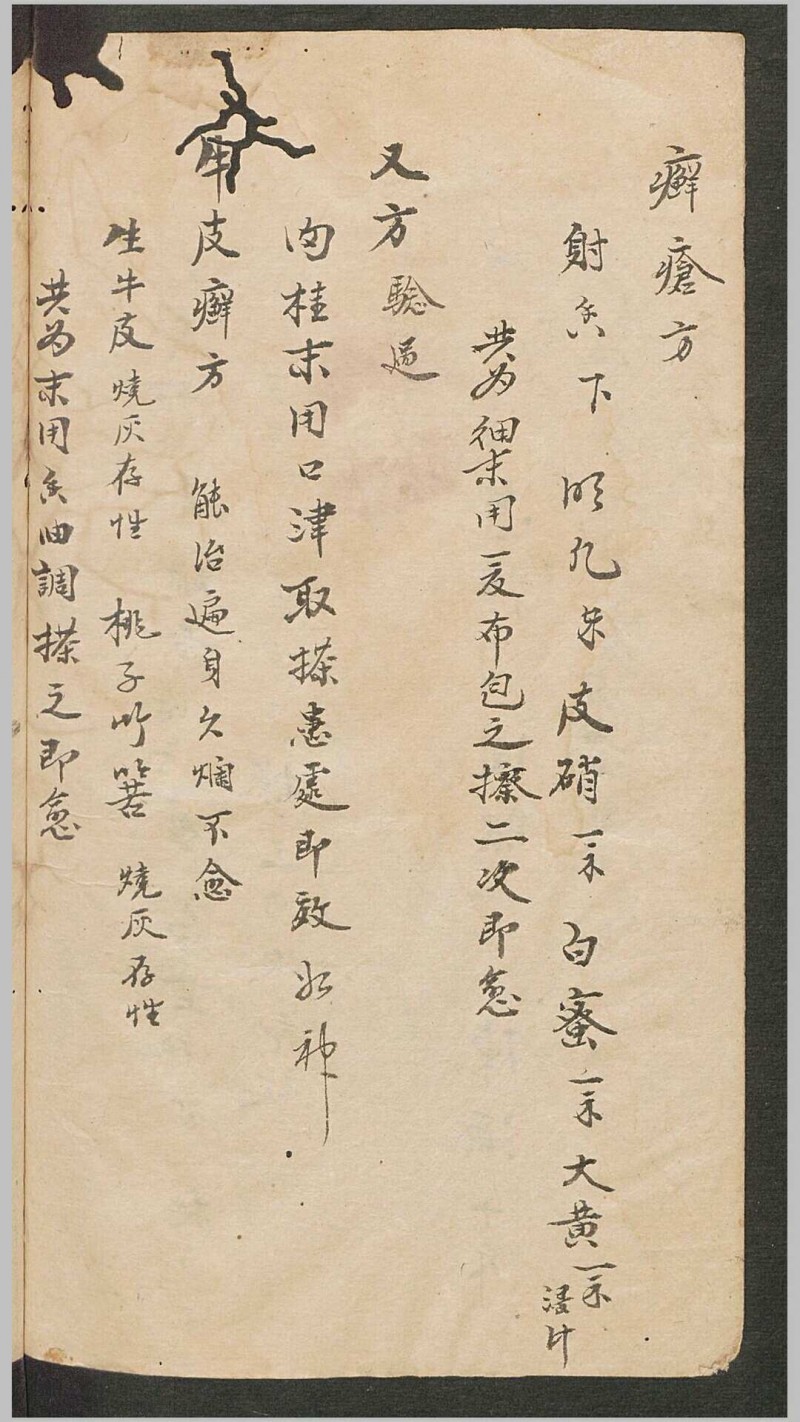 癬瘡方
射香下 明凡 皮硝一末 白蜜一末 大黄一末 浸汁
共为細末用一夏布包之擦二次即愈
又方 驗过
肉桂末用口津取搽患處即效如神
牛皮癬方 能治遍身久爛不愈
生牛皮 燒灰存性 桃子竹箬 燒灰存性
共为末用香油調搽之即愈